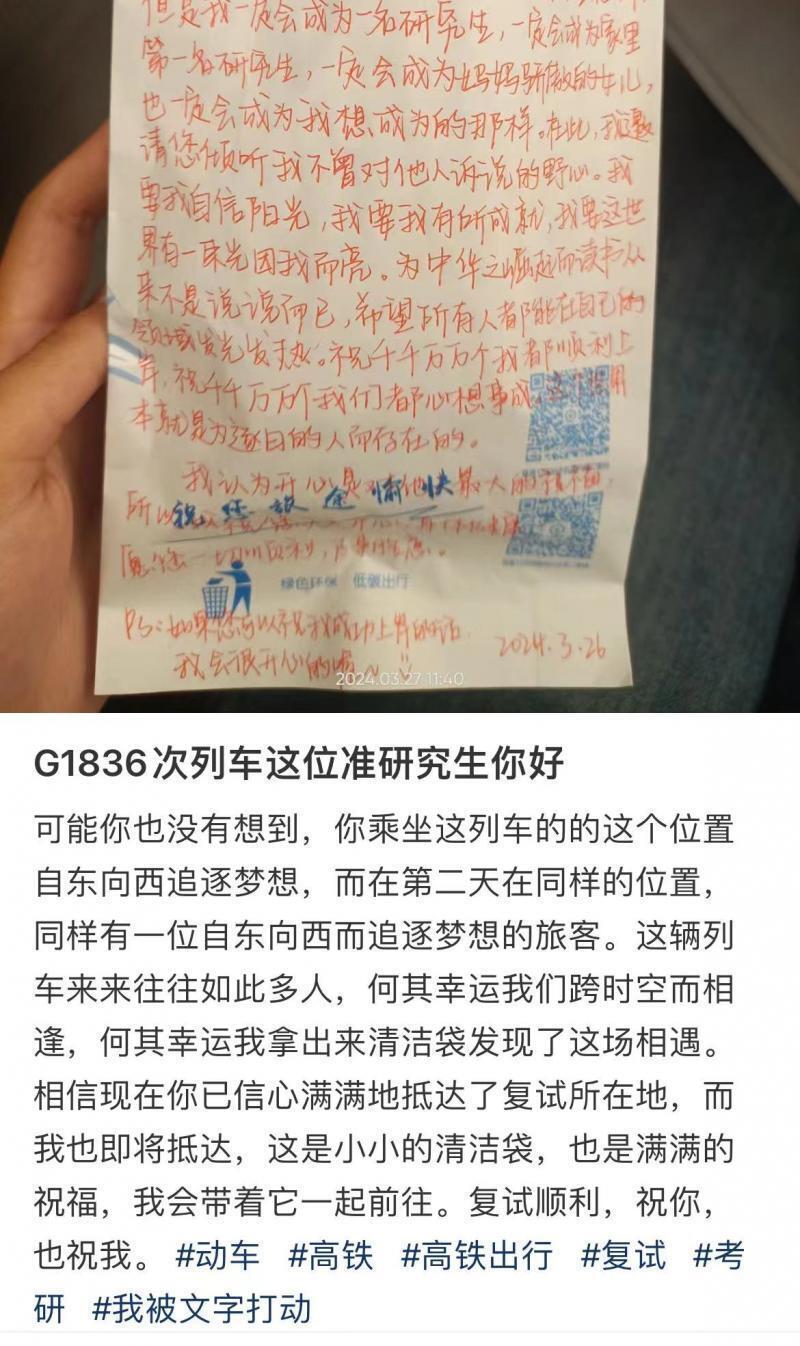 但是我一定会成为一名研究生，一定会成为家里
第一名研究生，一定会成为妈妈骄傲的女儿，
也一定会成为我想成为的那样。在此，我邀
请您倾听我不曾对他人诉说的野心。我
要我自信阳光，我要我有所成就，我要这世
界有一束光因我而亮。为中华之崛起而读书从
来不是说说而已，希望所有人都能在自己的
领域发光发热。祝千千万万个我都顺利上
岸，祝千千万万个我们都心想事成，这个世界
本就是为逐日的人而存在的。
我认为开心是对其他快最大的
所以祝您旅途愉快
愿您一切顺利，
绿色环保 低碳出行
PS：如果您可以祝我成功上岸的话
我会很开心的嘞~
2024.3.26
2024.03.27 11:40
G1836次列车这位准研究生你好
可能你也没有想到，你乘坐这列车的的这个位置
自东向西追逐梦想，而在第二天在同样的位置，
同样有一位自东向西而追逐梦想的旅客。这辆列
车来来往往如此多人，何其幸运我们跨时空而相
逢，何其幸运我拿出来清洁袋发现了这场相遇。
相信现在你已信心满满地抵达了复试所在地，而
我也即将抵达，这是小小的清洁袋，也是满满的
祝福，我会带着它一起前往。复试顺利，祝你，
也祝我。 #动车 #高铁 #高铁出行 #复试 #考
研 #我被文字打动